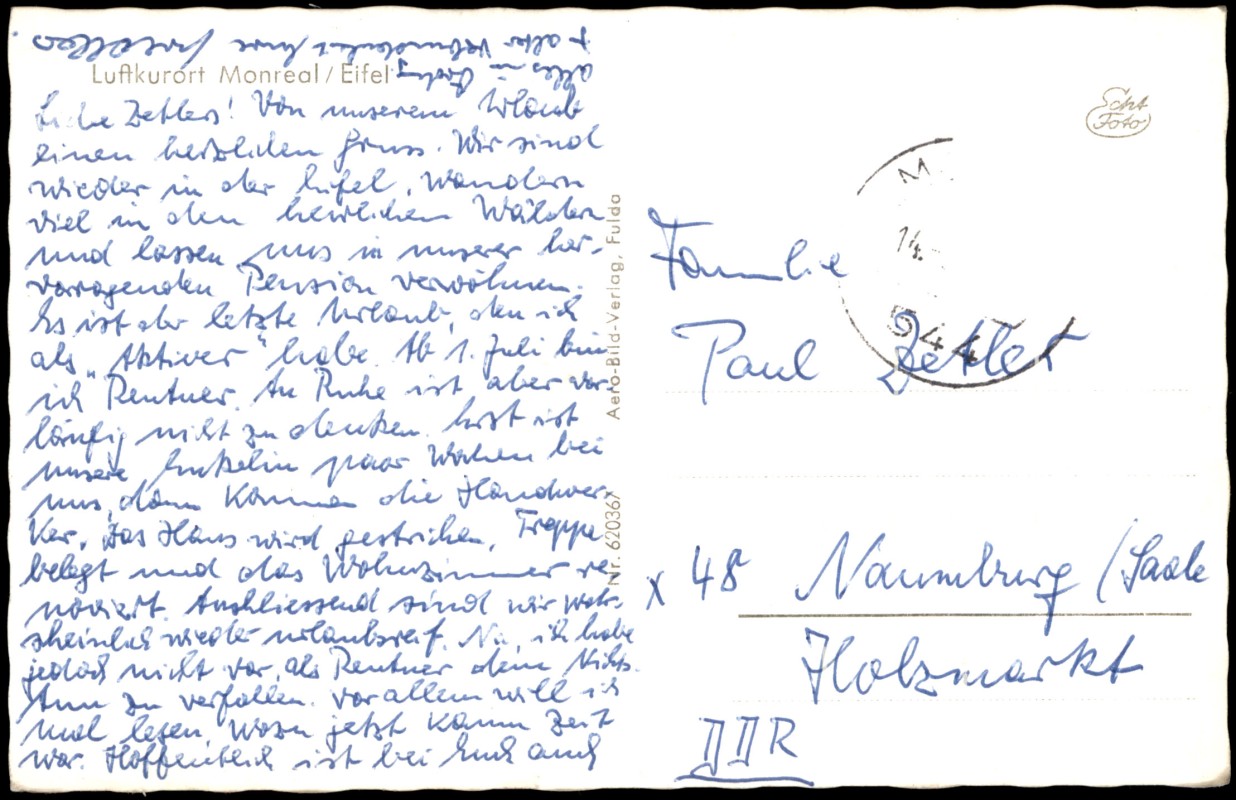 Luftkurort Monreal/Eifel
Liebe Zettlers! Von unserem Urlaub
einen herzlichen Gruss. Wir sind
wieder in der Eifel, wandern
viel in den herrlichen Wäldern
und lassen uns in unserer her-
vorragenden Pension verwöhnen.
Es ist der letzte Urlaub, den ich
als „Aktiver" habe. Ab 1. Juli bin
ich Rentner. An Ruhe ist aber vor-
läufig nicht zu denken. Erst ist
unsere Enkelin paar Wochen bei
uns, dann kommen die Handwer-
ker. Das Haus wird gestrichen, Treppe
belegt und das Wohnzimmer re-
noviert. Anschliessend sind wir wahr-
scheinlich wieder urlaubsreif. Na, ich habe
jedoch nicht vor, als Rentner dem Nichts-
tun zu verfallen. Vor allem will ich
mal lesen, wozu jetzt kaum Zeit
war. Hoffentlich ist bei Euch auch
alles in Ordng
+ alter Verbundenheit Eure
Aero-Bild-Verlag, Fulda
Nr. 62036x
Echt
Foto
M
14.
544
Familie
Paul Zettler
x 48 Naumburg (Saale
Holzmarkt
DDR